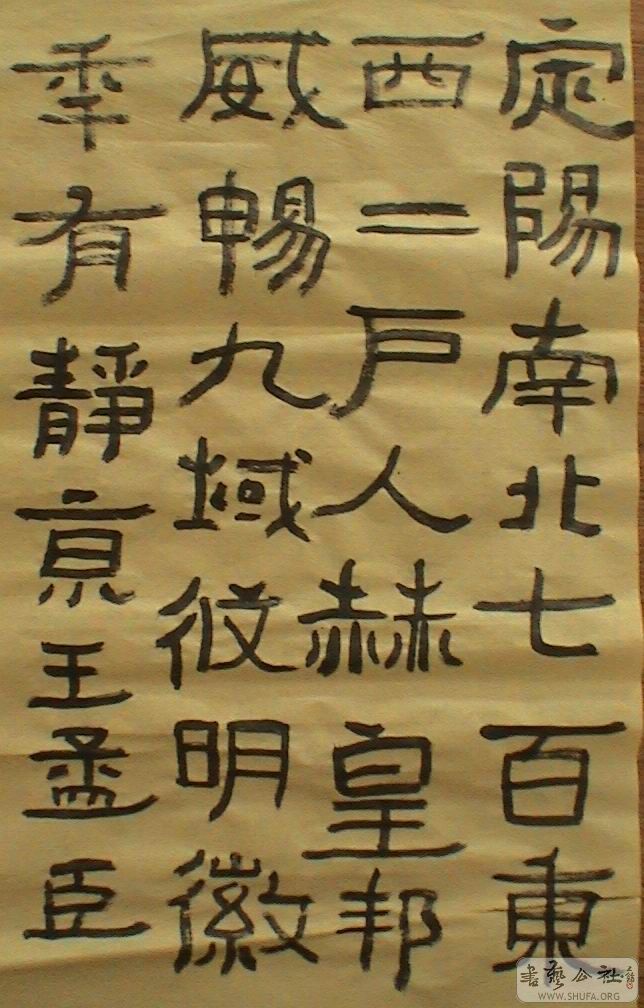 定陽南北七百東
西二户人赫皇邦
威暢九域明徽
季有靜亰王孟臣
書藝公社
WWW.SHUFA.ORG